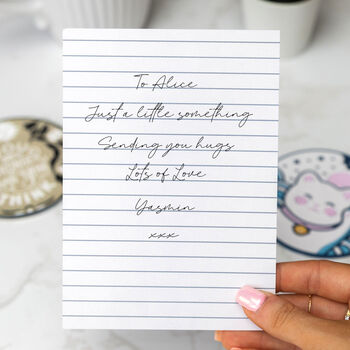 To Alice
Just a little something
Sending you hugs
Lots of Love
Yasmin
xxx